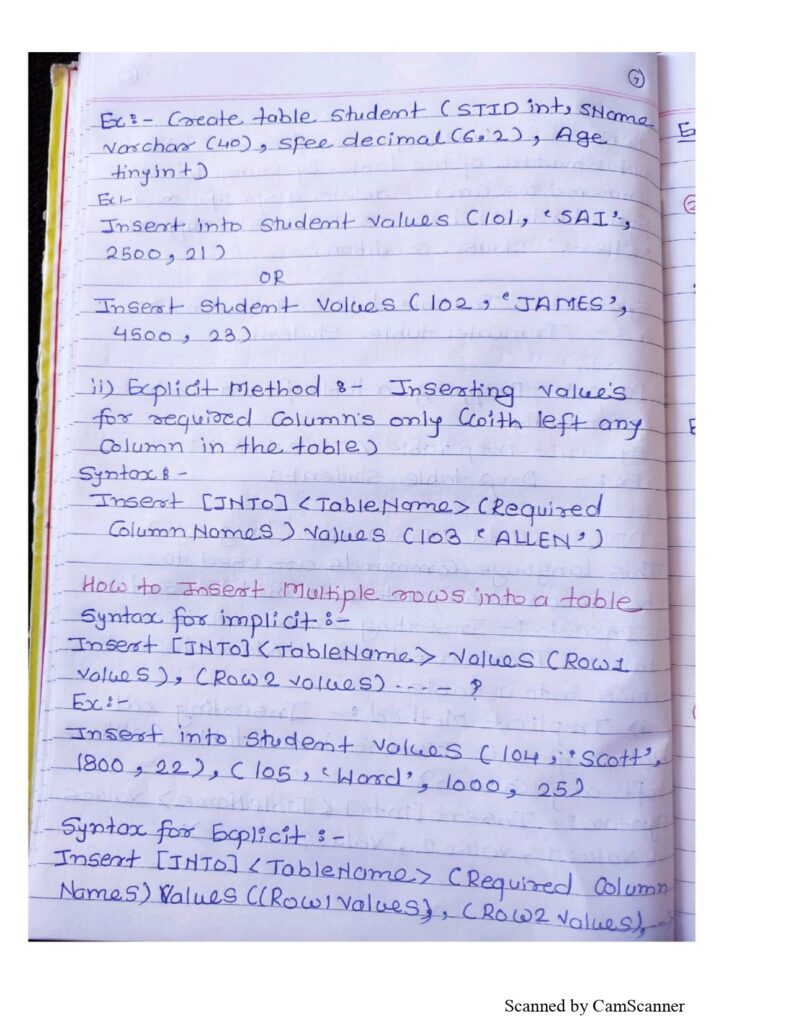 7
Ex:- Create table Student (STID int, SName
varchar (40), Sfee decimal(6,2), Age
tinyint)
Ex:-
Insert into Student values (101, 'SAI',
2500, 21)
OR
Insert Student Values (102, 'JAMES',
4500, 23)
ii) Explicit Method :- Inserting value's
for required Column's only (with left any
Column in the table)
Syntax :-
Insert [INTO] <TableName> (Required
Column Names) Values (103 'ALLEN')
How to Insert Multiple rows into a table
Syntax for implicit :-
Insert [INTO] <TableName> Values (Row1
Values), (Row2 values) ....- ?
Ex:-
Insert into Student values (104, 'Scott',
1800, 22), (105, 'Ward', 1000, 25)
Syntax for Explicit :-
Insert [INTO] <TableName> (Required Column
Names) Values ((Row1 Values), (Row2 Values), ...
Scanned by CamScanner